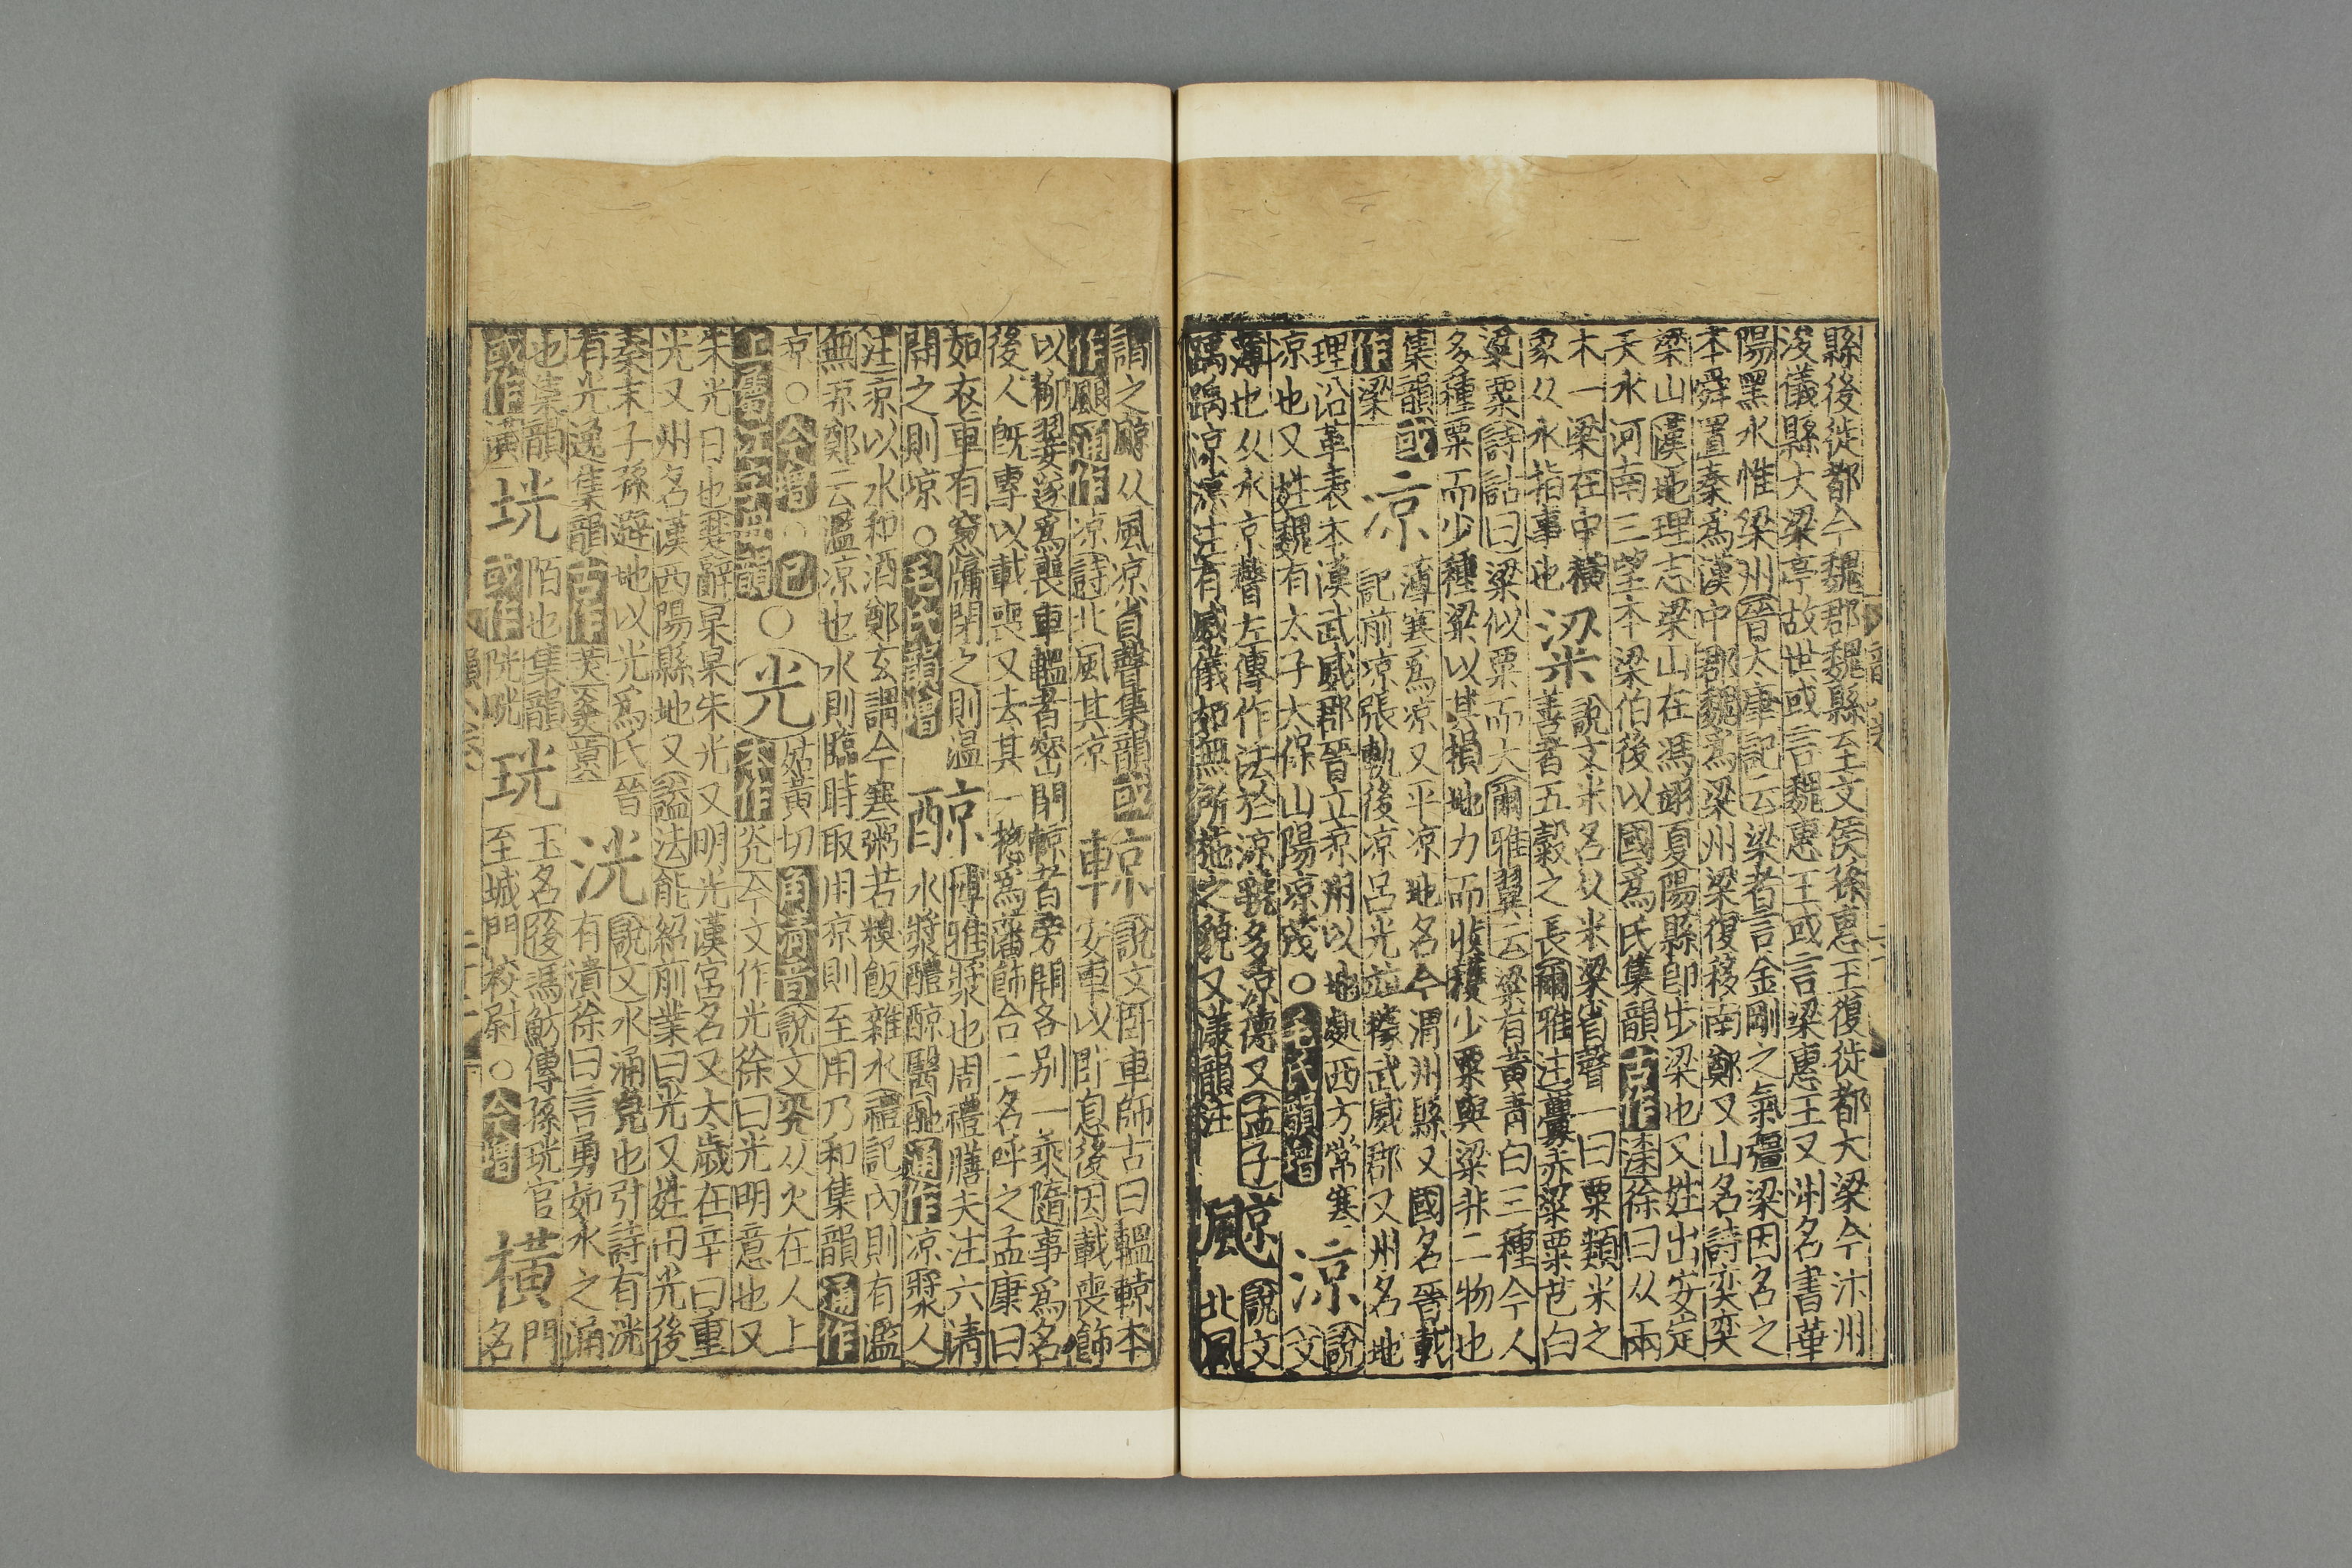 縣後徙都今魏郡魏縣至文侯孫惠王復徙都大梁今汴州
浚儀縣大梁亭故世或言魏惠王或言梁惠王又州名書華
陽黑水惟梁州晉太康記云梁者言金剛之氣彊梁因名之
本舜置秦爲漢中郡魏爲梁州梁復移南鄭又山名詩奕奕
梁山漢地理志梁山在馮翊夏陽縣卽出梁也又姓出安定
天水河南三望本梁伯後以國爲氏集韻古作 徐曰从兩
木一梁在中橫
象从水指事也
粱
說文米名从米梁省聲一曰粟類米之
善者五穀之長爾雅注虋赤粱粟芑白
粱粟詩詁曰粱似粟而大爾雅翼云粱有黃靑白三種今人
多種粟而少種粱以其損地力而收穫少粟與粱非二物也
集韻或
作梁
凉
薄寒爲凉又平凉地名今渭州縣又國名晉載
記前凉張軌後凉呂光並據武威郡又州名地
理沿革表本漢武威郡晉立凉州以地處西方常寒
凉也又姓魏有太子太保山陽凉茂○毛氏韻增
涼
說
文
薄也从水京聲左傳作法於涼虢多涼德又孟子
踽踽凉凉注有威儀如無所施之貌又漾韻注
飆
說文
北風
謂之飆从風凉省聲集韻或
作 通作凉詩北風其凉
輬
說文臥車師古曰轀輬本
安車以卧息後因載喪飾
以柳翣遂爲喪車轀者密閉輬者旁開各別一乘隨事爲名
後人旣專以載喪又去其一總爲藩飾合二名呼之孟康曰
如衣車有窻牖閉之則温
開之則凉○毛氏韻增
䣼
博雅漿也周禮膳夫注六淸
水漿醴䣼醫酏通作凉漿人
注凉以水和酒鄭玄謂今寒粥若糗飯雜水禮記內則有濫
無凉鄭云濫凉也水則臨時取用凉則至用乃和集韻通作
凉○今增○已
上屬江字母韻
○光
姑黃切角淸音說文灮从火在人上
本作灮今文作光徐曰光明意也又
朱光日也楚辭杲杲朱光又明光漢宮名又太歲在辛曰重
光又州名漢西陽縣地又謚法能紹前業曰光又姓田光後
秦末子孫避地以光爲氏晉
有光逸集韻古作炗
洸
說文水涌光也引詩有洸
有潰徐曰言勇如水之涌
也集韻
或作潢
垙
陌也集韻
或作
珖
玉名後馮魴傳孫珖官
至城門校尉○今增
橫
門
名